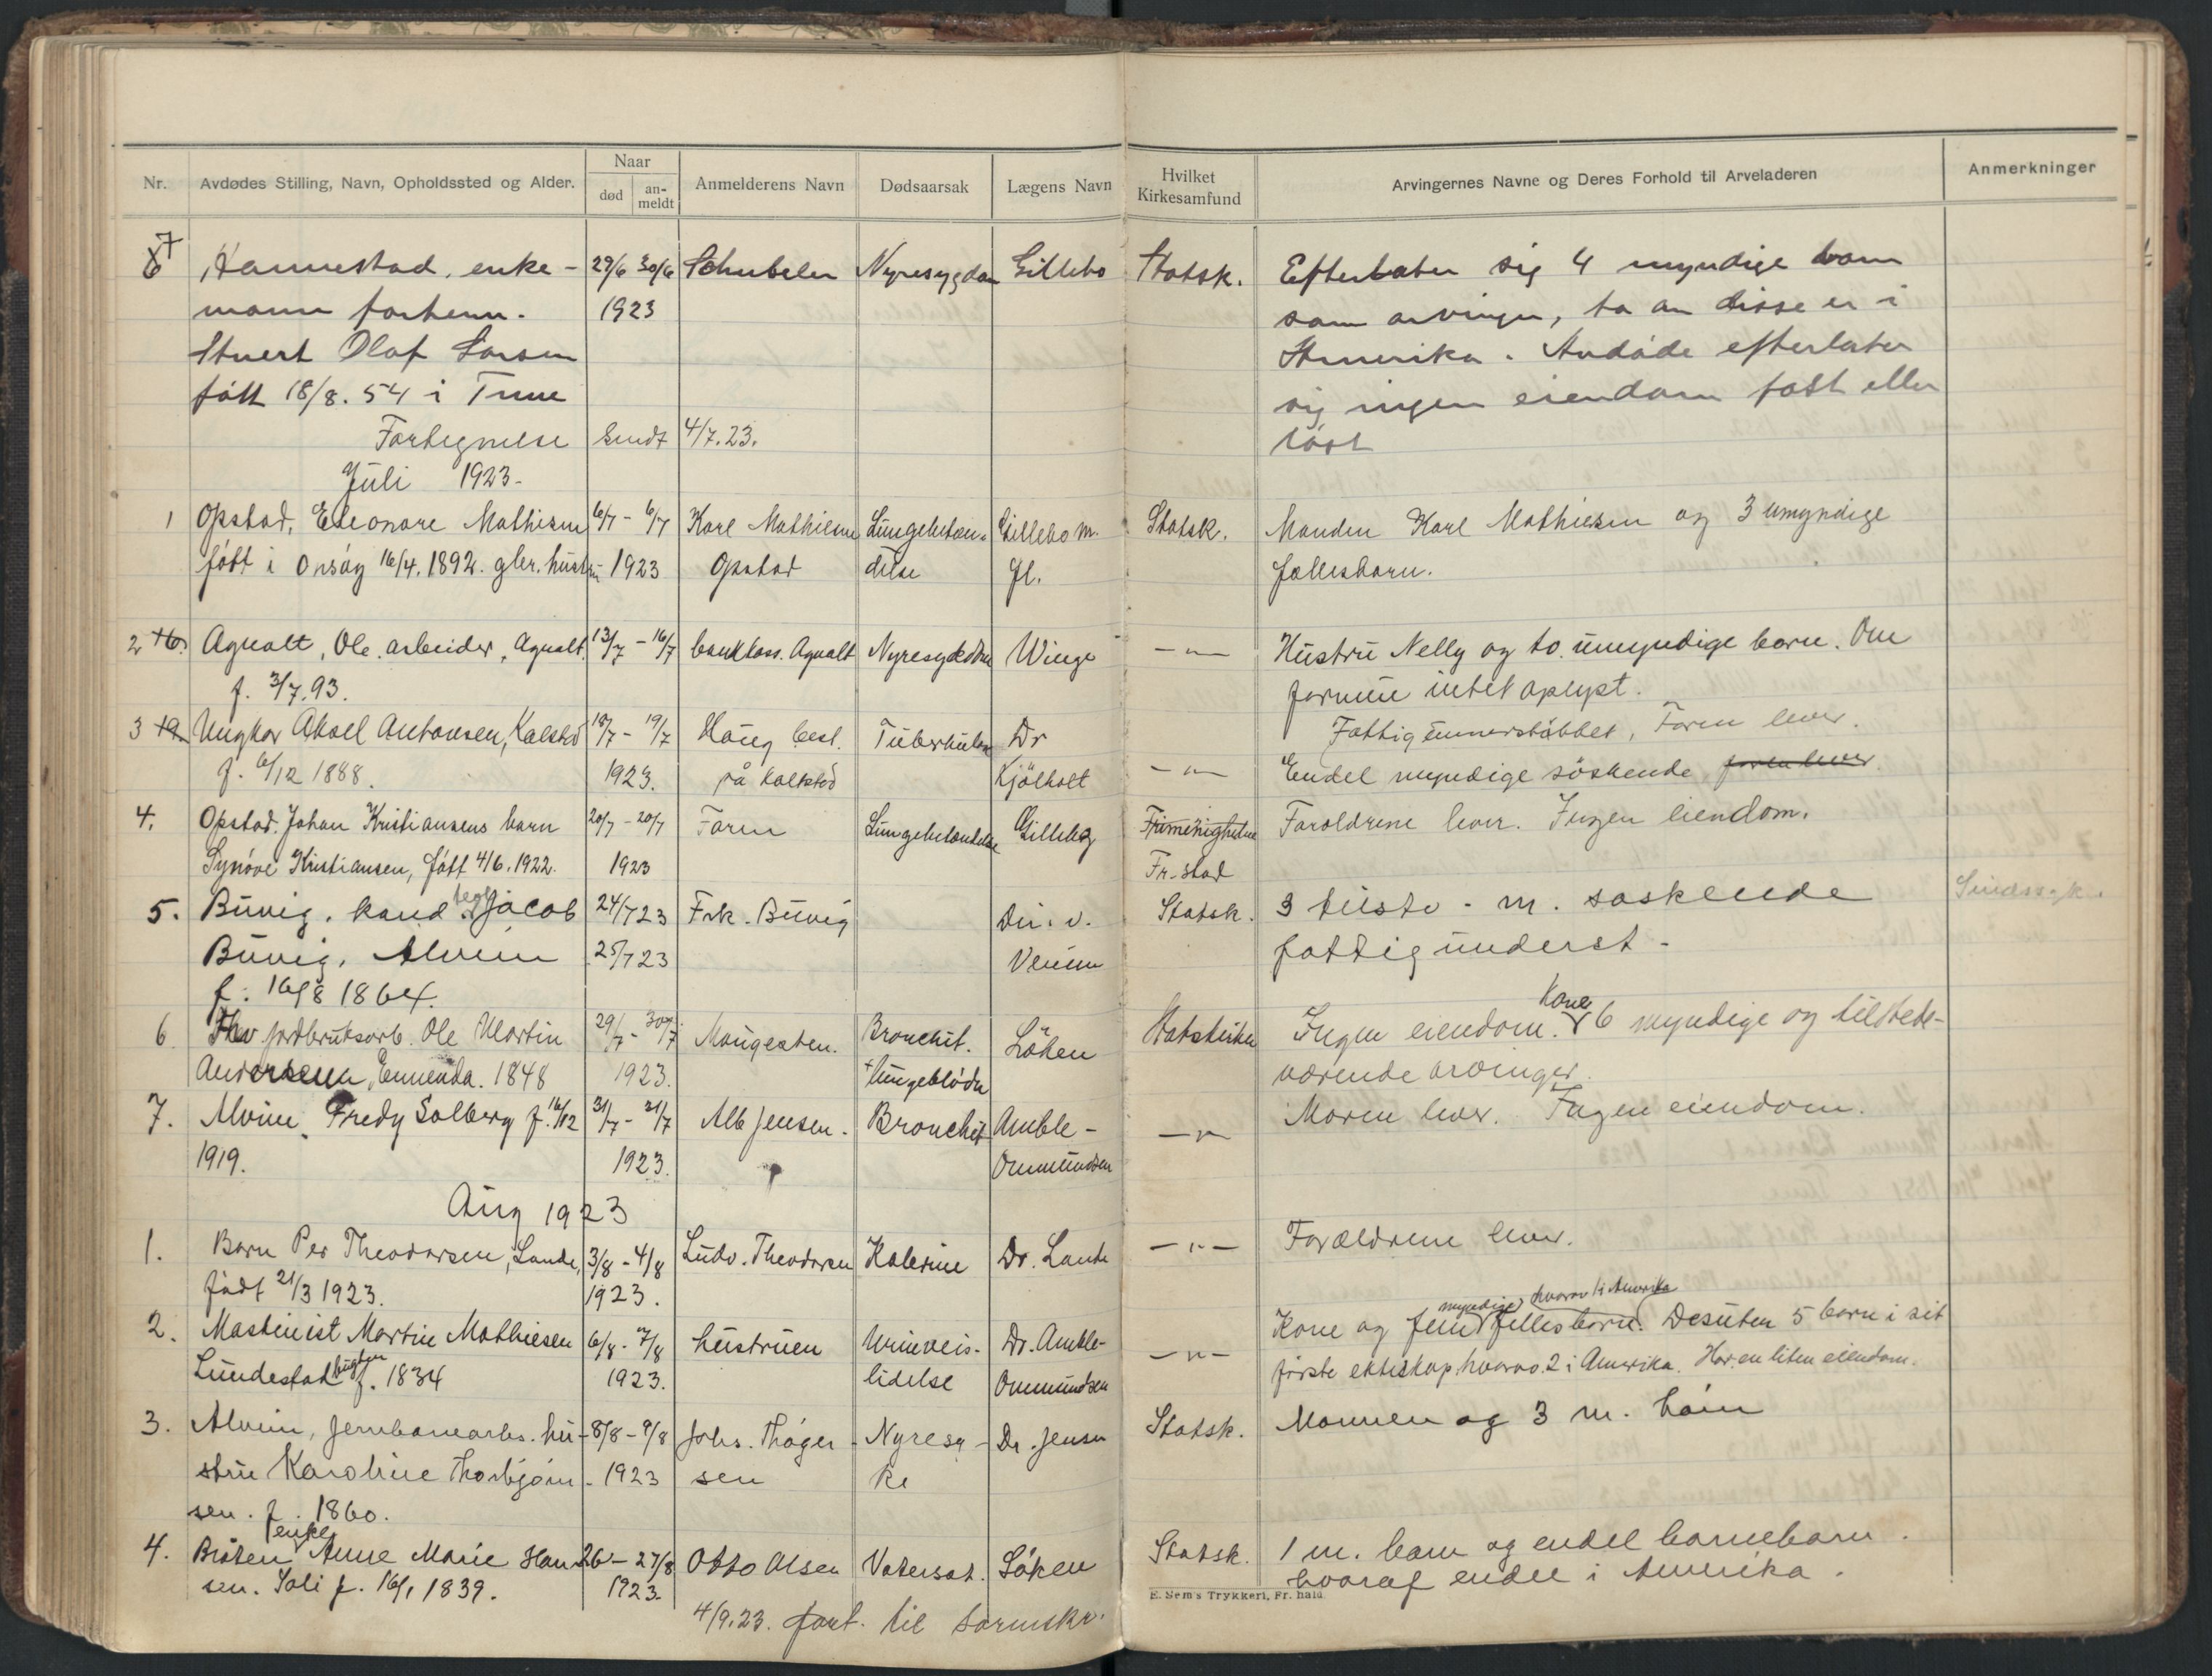 Nr.
Avdødes Stilling, Navn, Opholdssted og Alder.
Naar
død
an-
meldt
Anmelderens Navn
Dødsaarsak
Lægens Navn
Hvilket
Kirkesamfund
Arvingernes Navne og Deres Forhold til Arveladeren
Anmerkninger
7 Hannestad, enke- 29/6 30/6 Schubeler Nyresygdom Gillebo Statsk. Efterlater sig 4 myndige barn
mann forhenv. 1923 som arvinger, to av disse er i
Stuert Olaf Larsen Amerika. Avdöde efterlater
fött 18/8. 54 i Tune sig ingen eiendom fast eller
Fortegnelse sendt 4/7.23. löst
Juli 1923.
1 Opstad, Eleonore Mathisen 6/7 - 6/7 Karl Mathisen Lungebeten- Gillebo m. Statsk. Manden Karl Mathiesen og 3 umyndige
fött i Onsöy 16/4. 1892. gbr. hustru 1923 Opstad delse Gl. fællesbarn.
2 Agnalt, Ole, arbeider, Agnalt. 13/7 - 16/7 bankkass. Agnalt Nyresygdom Winge -"- Hustru Nelly og to umyndige barn. Om
f. 3/7.93. formue intet oplyst.
3 Ungkar Aksel Antonsen, Kalstad 18/7 - 19/7 Haug best. Tuberkulose Dr Fattigunnerstöttet, Faren lever.
f. 6/12 1888. 1923. på Kalkstad Kjölholt -"- Endel myndige söskende, faren lever.
4. Opstad. Johan Kristiansens barn 20/7 - 20/7 Faren Lungebetendelse Gillebo Frimenigheten Foroldrene lever. Ingen eiendom.
Synöve Kristiansen, fött 4/6. 1922. 1923 Fr.stad
5. Buvig, kand. teol. Jacob 24/7 23 Frk. Buvig Dir. v. Statsk. 3 m. soskende Sindss.
Buvig, Alvim 25/7 23 fattigunderst-
f. 16/8 1864.
6. jordbruksarb. Ole Martin 29/7 - 30/7 Maugesten. Bronchit. Löken Statskirken Ingen eiendom. Kone 6 myndige og tilstede-
Andersen, Enmenda. 1848 1923. + lungeblödn værende arvinger.
7. Alvim, Fredy Solberg f. 16/12 31/7 - 31/7 Alb Jensen. Bronchit Amble- -"- Moren lever. Ingen eiendom.
1919. 1923. Ommundsen
Aug 1923
1. Barn Per Theodorsen, Lande, 3/8 - 4/8 Ludv. Theodorsen Kolerine Dr. Lande -"- Forældrene lever.
födt 21/3 1923. 1923.
myndige hvorav 1 i Amerika
2. Maskinist Martin Mathiesen 6/8 - 7/8 hustruen Urinveis- Dr. Amble- -"- Kone og fem fellesbarn. Desuten 5 barn i sit
Lundestadbugten f. 1834 1923. lidelse Ommundsen förste ektiskap, hvorav 2 i Amerika. Har en liten eiendom.
3. Alvim, Jernbanearb. hu- 8/8 - 9/8 Johs. Thöger- Nyresy- Dr. Jensen Statsk. Mannen og 3 m. barn
stru Karoline Thorbjörn- 1923 sen ke
sen. f. 1860.
enke
4. Bröten Anne Marie Han- 26 - 27/8 Otto Olsen Vatersot. Löken Statsk. 1 m. barn og endel barnebarn.
sen. Soli f. 16/1 1839. 1923. hvoraf endel i Amerika.
E. Sem's Trykkeri, Fr. hald
4/9.23. fort. til sorenskr.